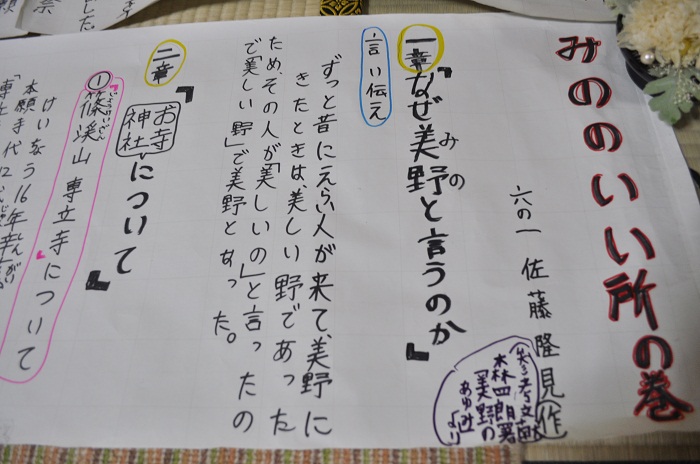 みののいい所の巻
六の一 佐藤隆見作
一章『なぜ美野と言うのか』
みの
参考文献
「美野の
あゆみ」
より
言い伝え
ずっと昔にえらい人が来て、美野に
きたときは、美しい野であった
ため、その人が「美しいの」と言ったの
で「美しい野」で美野となった。
二章
『お寺
神社について』
①篠渓山専立寺について
けいちょう16年
本願寺代12代